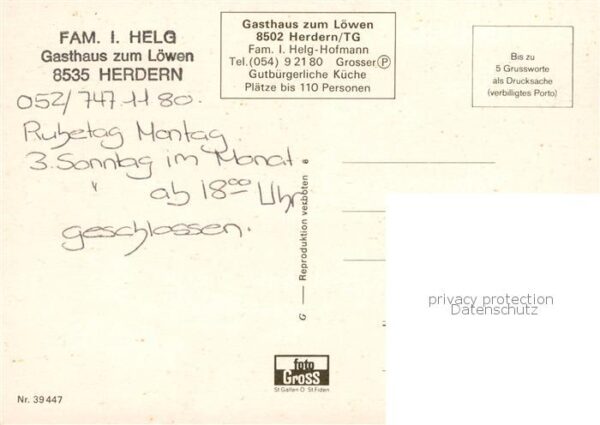 FAM. I. HELG
Gasthaus zum Löwen
8535 HERDERN
Gasthaus zum Löwen
8502 Herdern/TG
Fam. I. Helg-Hofmann
Tel. (054) 9 21 80 Grosser Ⓟ
Gutbürgerliche Küche
Plätze bis 110 Personen
Bis zu
5 Grussworte
als Drucksache
(verbilligtes Porto)
052/747 11 80.
Ruhetag Montag
3. Sonntag im Monat
" ab 18 00 Uhr
geschlossen.
G — Reproduktion verboten 8
privacy protection
Datenschutz
foto
GROSS
St Gallen O St Fiden
Nr. 39 447